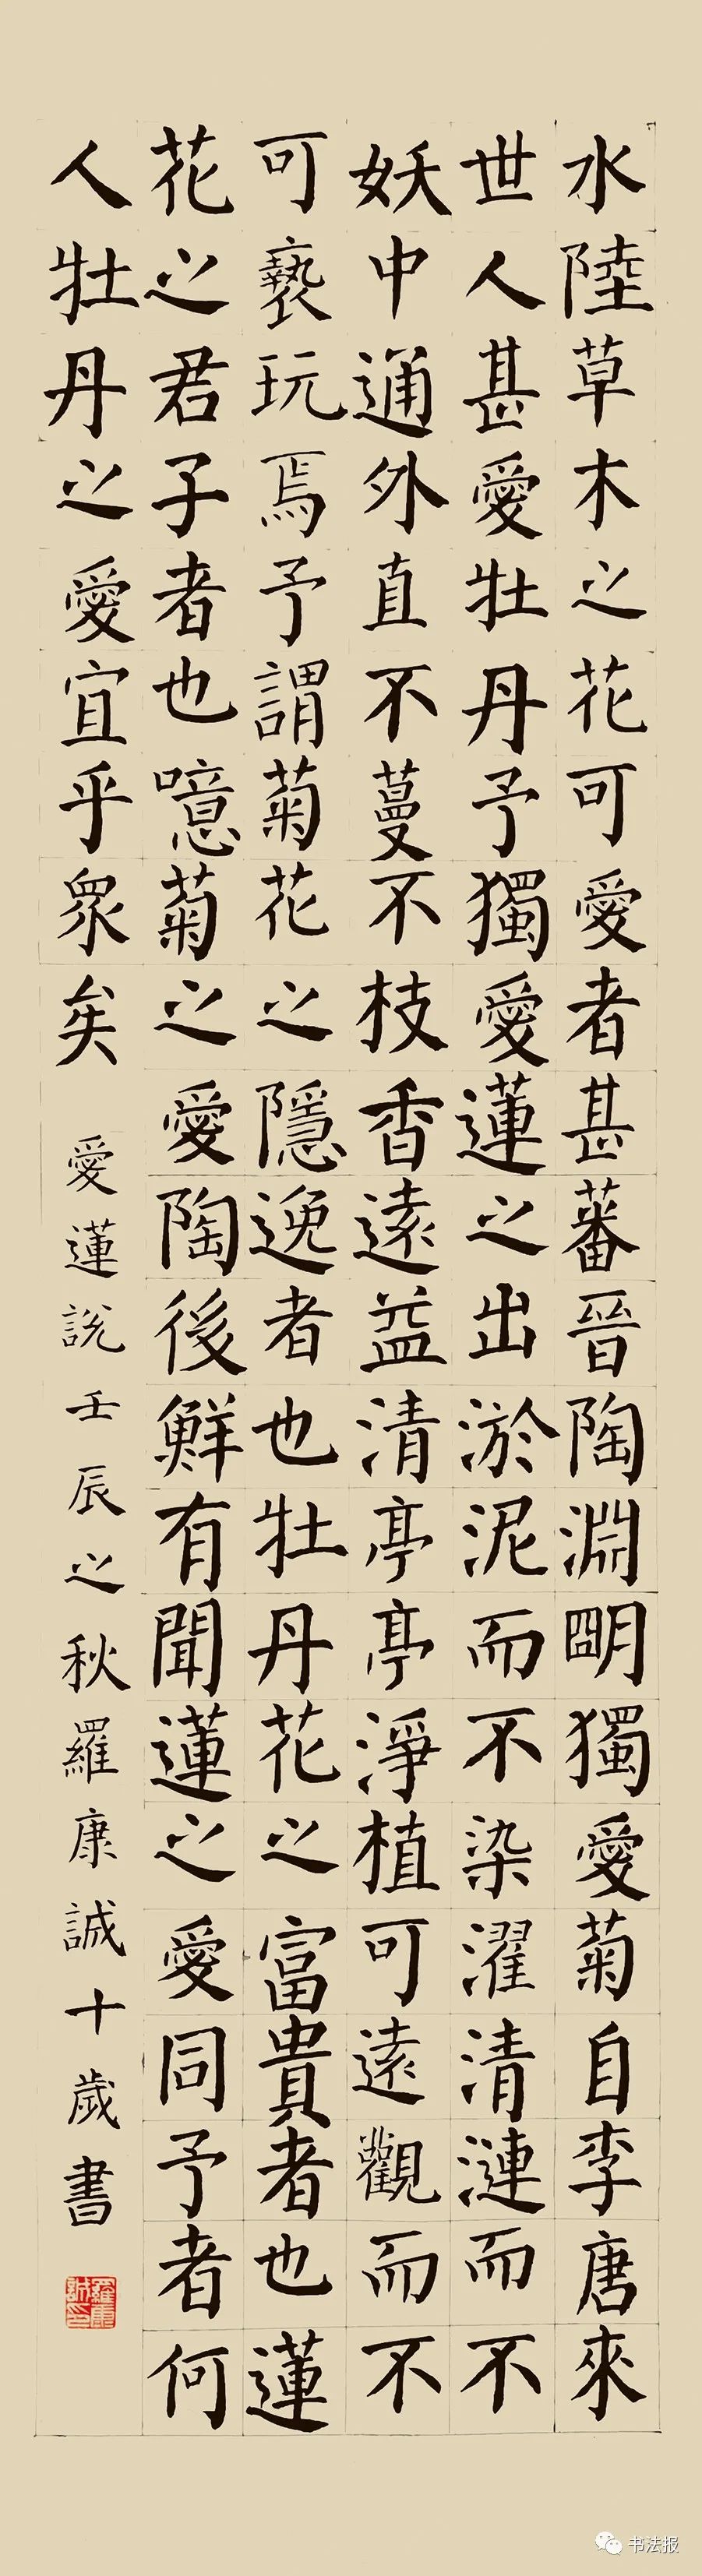 水陸草木之花可愛者甚蕃晉陶淵朙獨愛菊自李唐來
世人甚愛牡丹予獨愛蓮之出淤泥而不染濯清漣而不
妖中通外直不蔓不枝香遠益清亭亭淨植可遠觀而不
可褻玩焉予謂菊花之隱逸者也牡丹花之富貴者也蓮
花之君子者也噫菊之愛陶後鮮有聞蓮之愛同予者何
人牡丹之愛宜乎眾矣 愛蓮說壬辰之秋羅康誠十歲書
羅康誠印
书法报